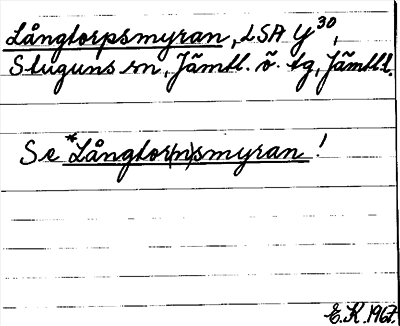 Långtorpsmyran, LSA Y³⁰,
Stuguns sn, Jämtl. ö. tg, Jämtl.l.
Se *Långtor(n)smyran!
E.K. 1967.